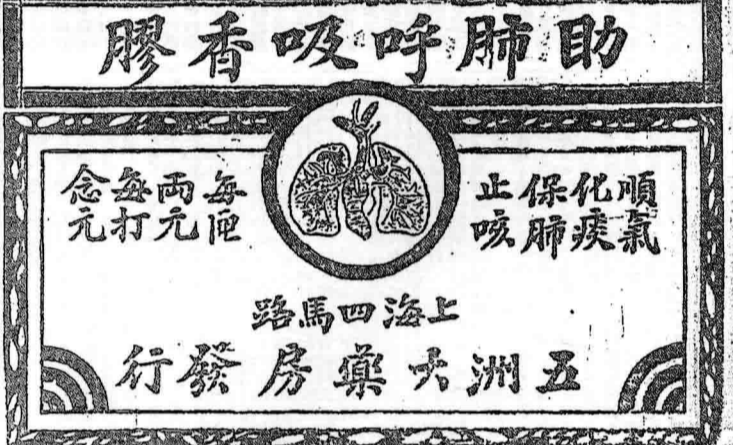 助肺呼吸香膠
順氣
化痰
保肺
止咳
每匣
両元
每打
念元
上海四馬路
五洲大藥房發行